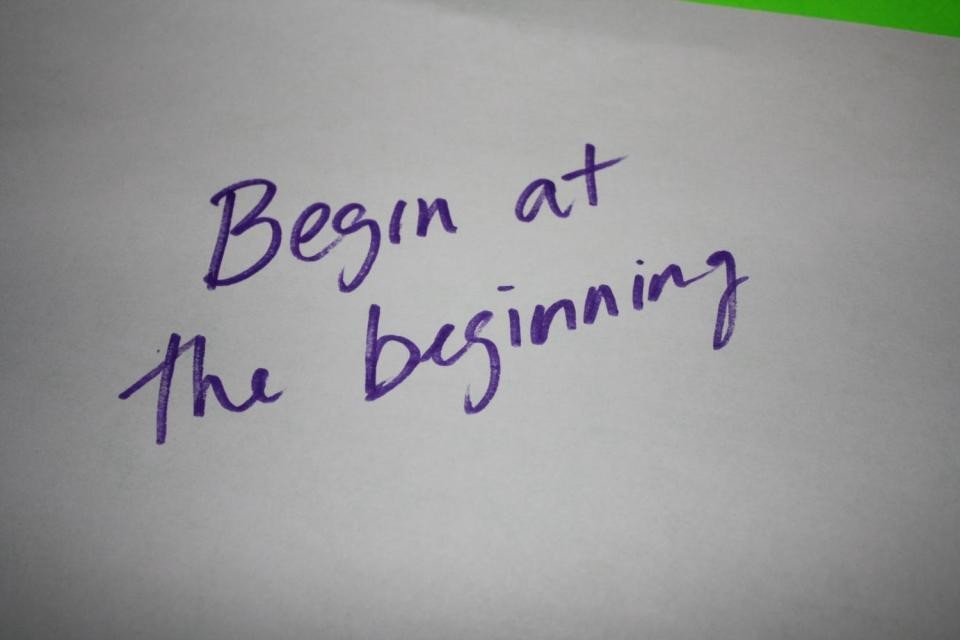 Begin at
the beginning